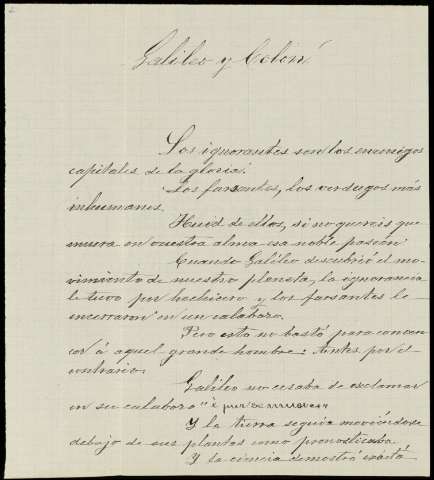 Galileo y Colón
Los ignorantes son los enemigos
capitales de la gloria.
Los farsantes, los verdugos más
inhumanos.
Huid de ellos, si no quereis que
muera en vuestra alma esa noble pasión
Cuando Galileo descubrió el mo-
vimiento de nuestro planeta, la ignorancia
le tuvo por hechicero y los farsantes le
encerraron en un calabozo.
Pero esto no bastó para conven-
cer á aquel grande hombre: Antes por el
contrario.
Galileo no cesaba de exclamar
en su calabozo "è pur se muove"
Y la tierra seguia moviéndose
debajo de sus plantas como pronosticaba.
Y la ciencia demostró exacta